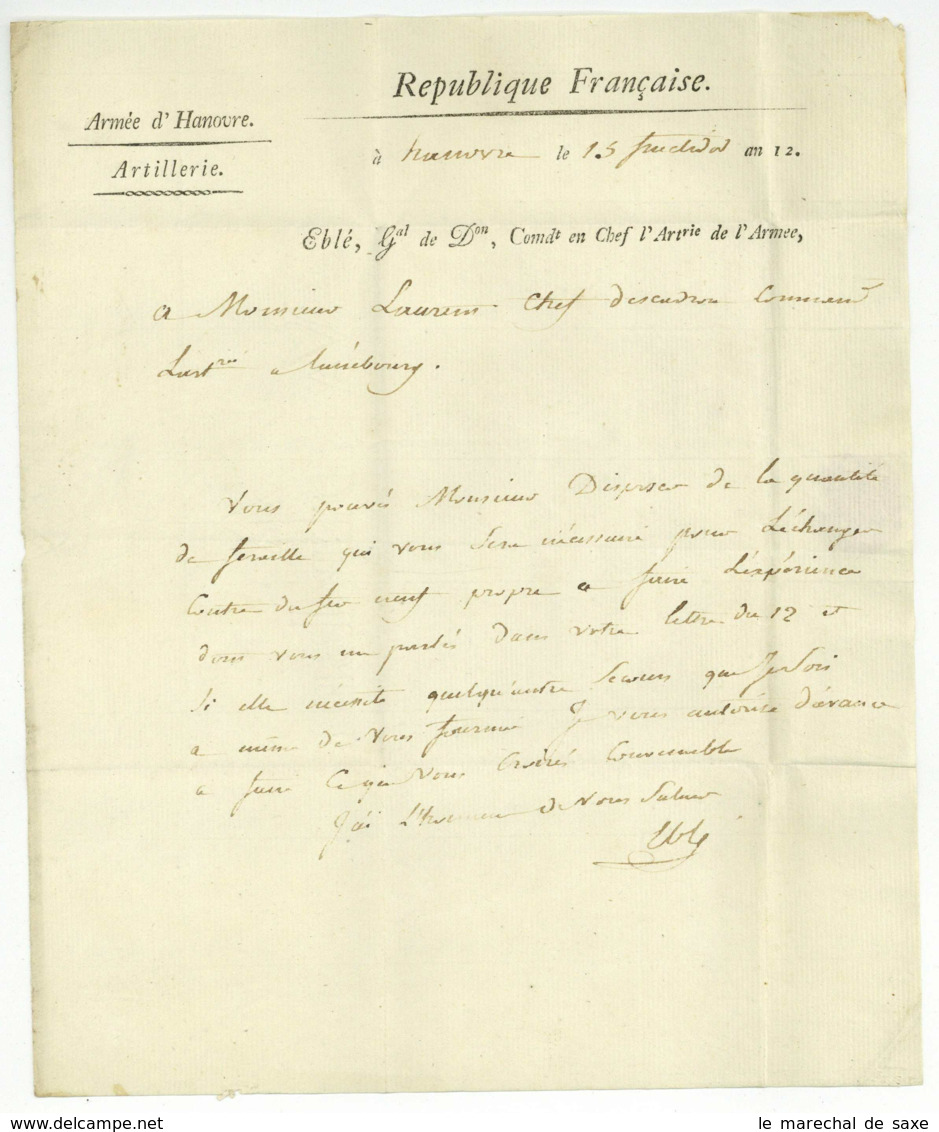 Republique Française.
Armée d'Hanovre.
Artillerie.
à hanovre le 15 fructidor an 12.
Eblé, Gal de Don, Comdt en Chef l'Artrie de l'Armee,
a Monsieur Laurens Chef descadron Command
Lartrie a lunébourg.
Vous pouvés Monsieur Disposer de la quantité
de feraille qui vous Sera nécessaire pour L'échanger
Contre du fer neuf propre a faire L'expérience
dons vous me parlés dans votre lettre du 12 et
Si elle nécessite quelqu'autre Secours que Je Sois
a même de Vous fournir Je vous autorise d'avance
a faire Ce que Vous Croirés Convenable
J'ai L'honneur de Vous Saluer
Eblé
le marechal de saxe